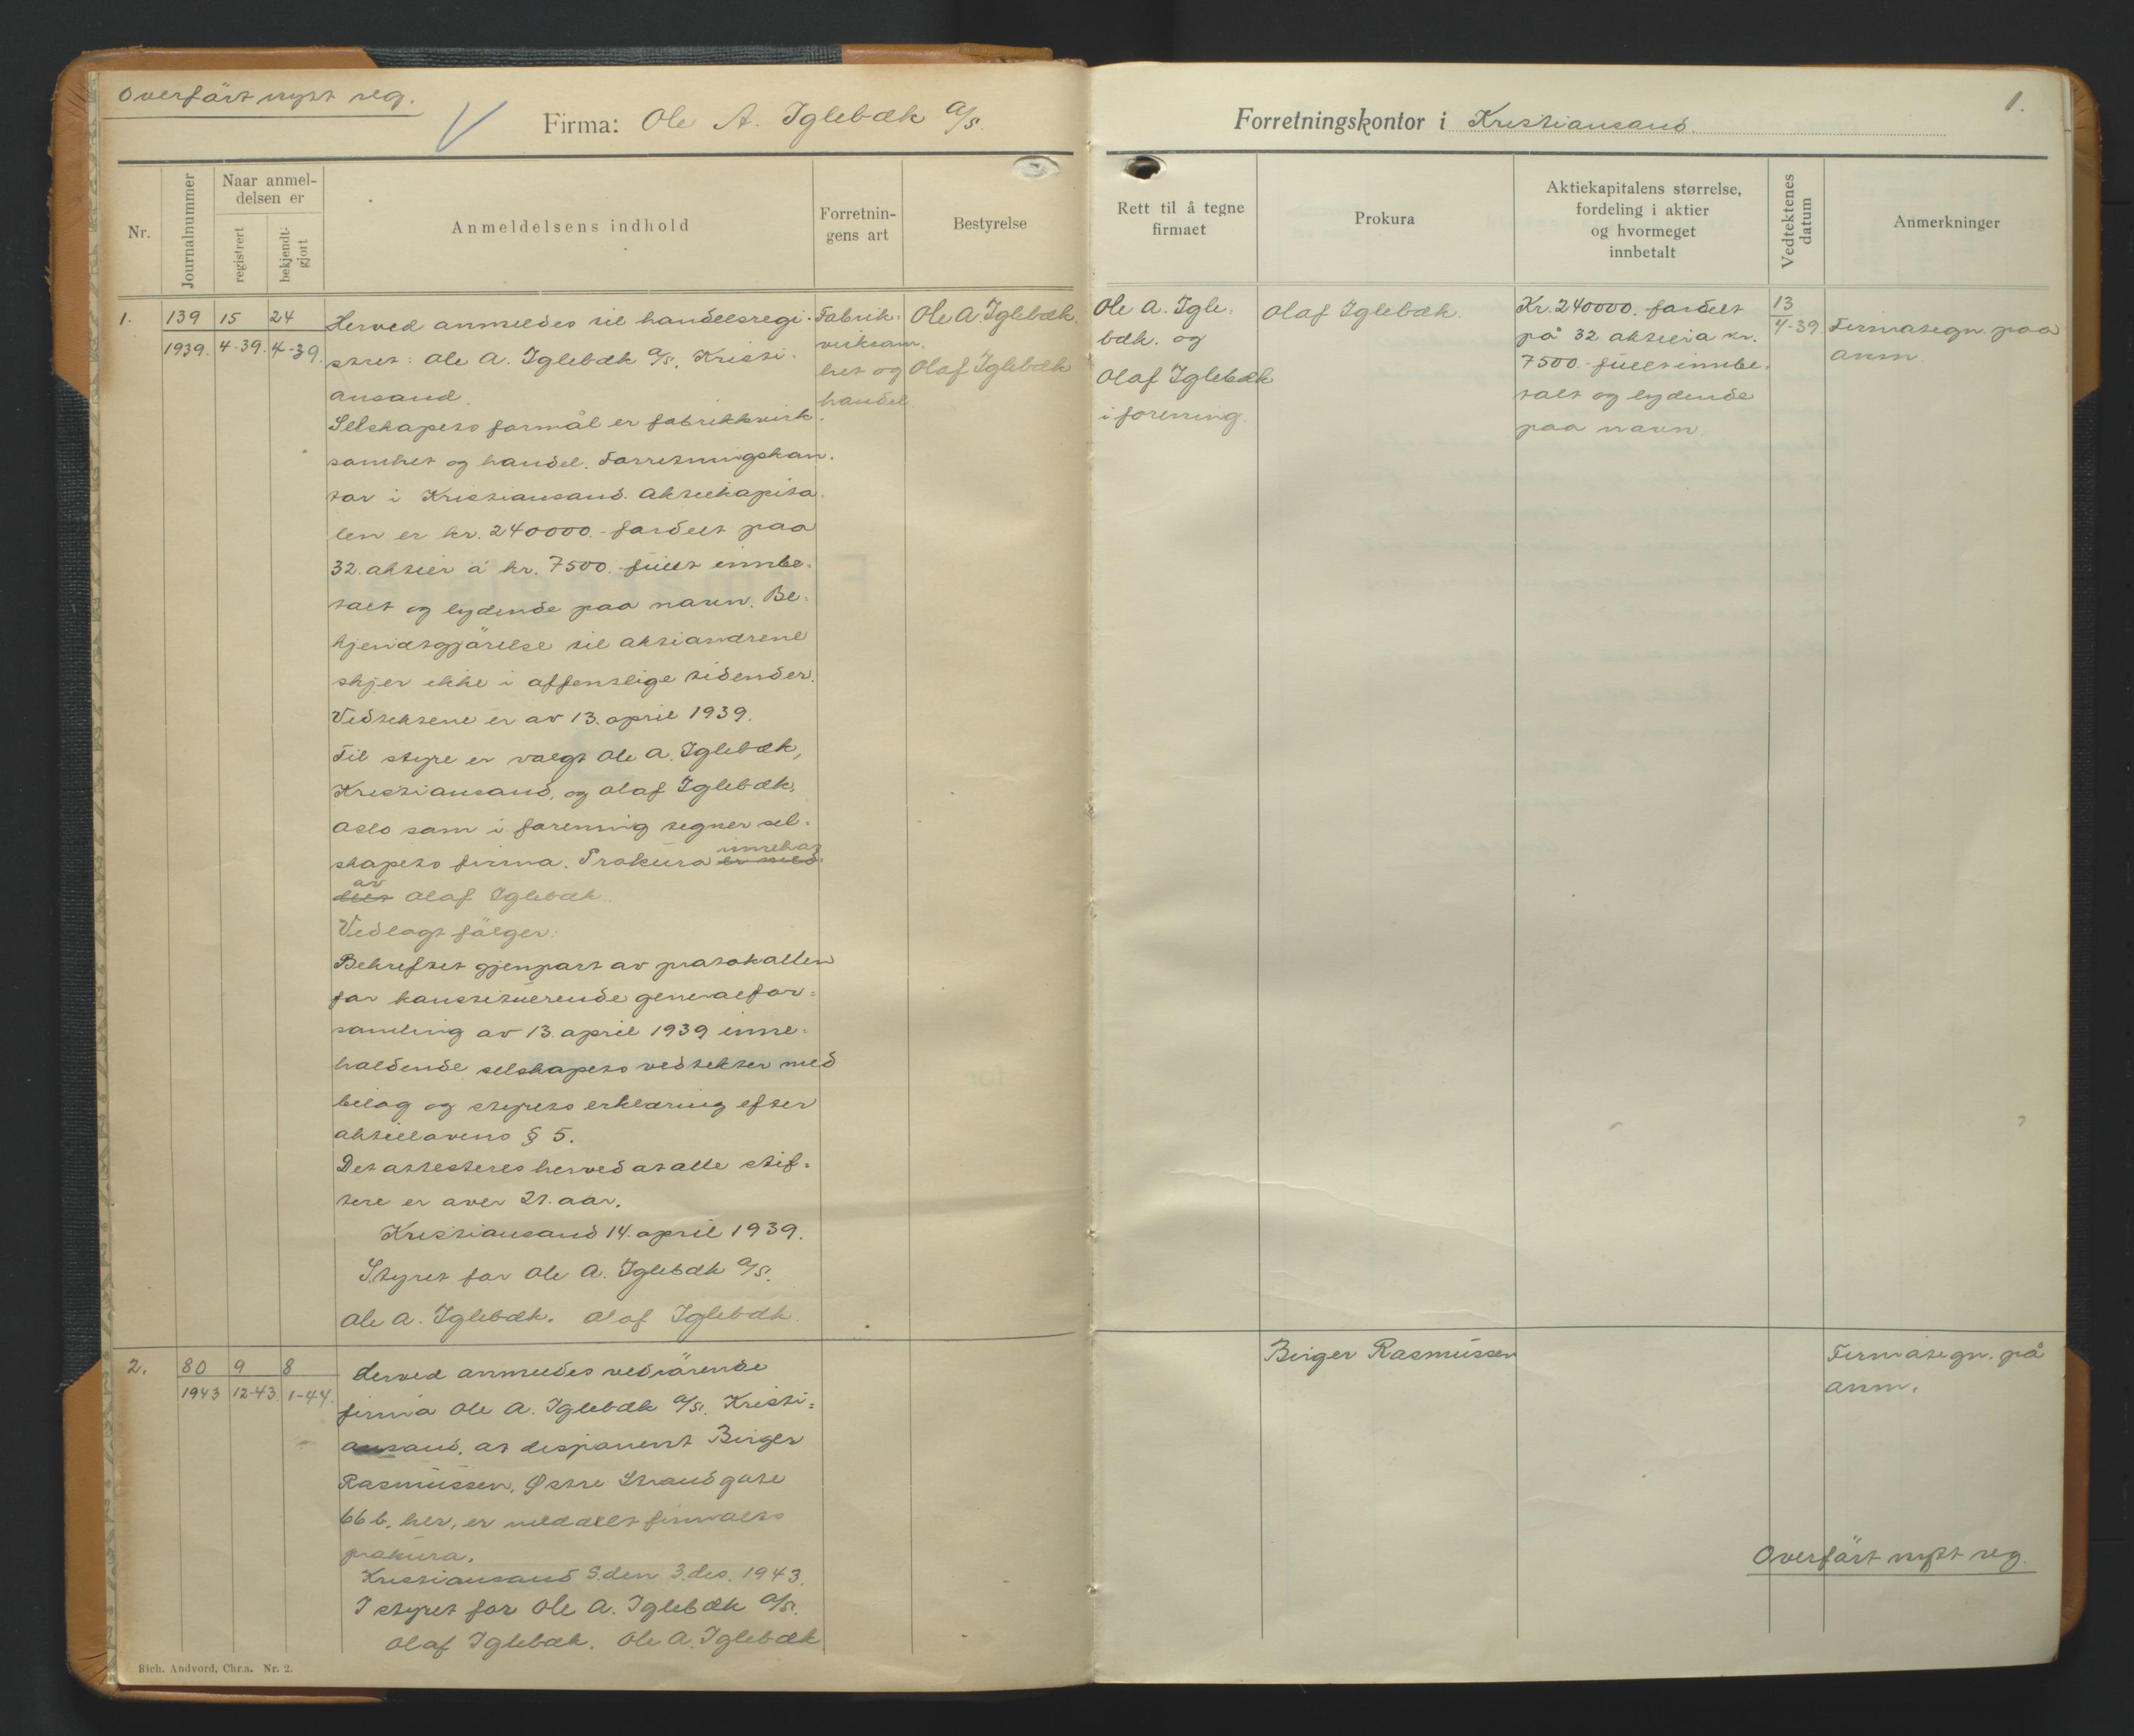 Overført nytt reg.
Firma: Ole A. Iglebæk A/S.
Forretningskontor i Kristiansand.
1.
Nr.
Journalnummer
Naar anmel-
delsen er
registrert
bekjendt-
gjort
Anmeldelsens indhold
Forretnin-
gens art
Bestyrelse
Rett til å tegne
firmaet
Prokura
Aktiekapitalens størrelse,
fordeling i aktier
og hvormeget
innbetalt
Vedtektenes
datum
Anmerkninger
1.
139
1939.
15
4-39.
24
4-39.
Herved anmeldes til handelsregi-
stret: Ole A. Iglebæk A/S, Kristi-
ansand.
Selskapets formål er fabrikkvirk-
somhet og handel. Forretningskon-
tor i Kristiansand. Aktiekapita-
len er kr. 240000.- fordelt paa
32 aktier à kr. 7500.- fullt innbe-
talt og lydende paa navn. Be-
kjendtgjørelse til aktionærene
skjer ikke i offentlige tidender.
Vedtektene er av 13. april 1939.
Til styre er valgt Ole A. Iglebæk,
Kristiansand, og Olaf Iglebæk,
Oslo som i forening tegner sel-
innehas
skapets firma. Prokura er med-
av
delt Olaf Iglebæk.
Vedlagt følger:
Bekreftet gjenpart av protokollen
for konstituerende generalfor-
samling av 13. april 1939 inne-
holdende selskapets vedtekter med
bilag og styrets erklæring efter
aktielovens § 5.
Det attesteres herved at alle stif-
tere er over 21 aar.
Kristiansand 14. april 1939.
Styret for Ole A. Iglebæk A/S.
Ole A. Iglebæk. Olaf Iglebæk.
Fabrik-
virksom-
het og
handel
Ole A. Iglebæk.
Olaf Iglebæk
Ole A. Igle-
bæk. og
Olaf Iglebæk
i forening.
Olaf Iglebæk.
Kr. 240000. fordelt
på 32 aktier a kr.
7500.- fullt innbe-
talt og lydende
paa navn.
13
4-39.
Firmategn. paa
anm.
2.
80
1943
9
12-43
8
1-44.
Herved anmeldes vedrørende
firma Ole A. Iglebæk A/S. Kristi-
ansand, at disponent Birger
Rasmussen, Østre Strandgate
66 b, her, er meddelt firmaets
prokura.
Kristiansand S. den 3. des. 1943.
I styret for Ole A. Iglebæk A/S.
Olaf Iglebæk. Ole A. Iglebæk
Birger Rasmussen
Firmategn. på
anm.
Overført nytt reg.
Rich. Andvord, Chr.a. Nr. 2.